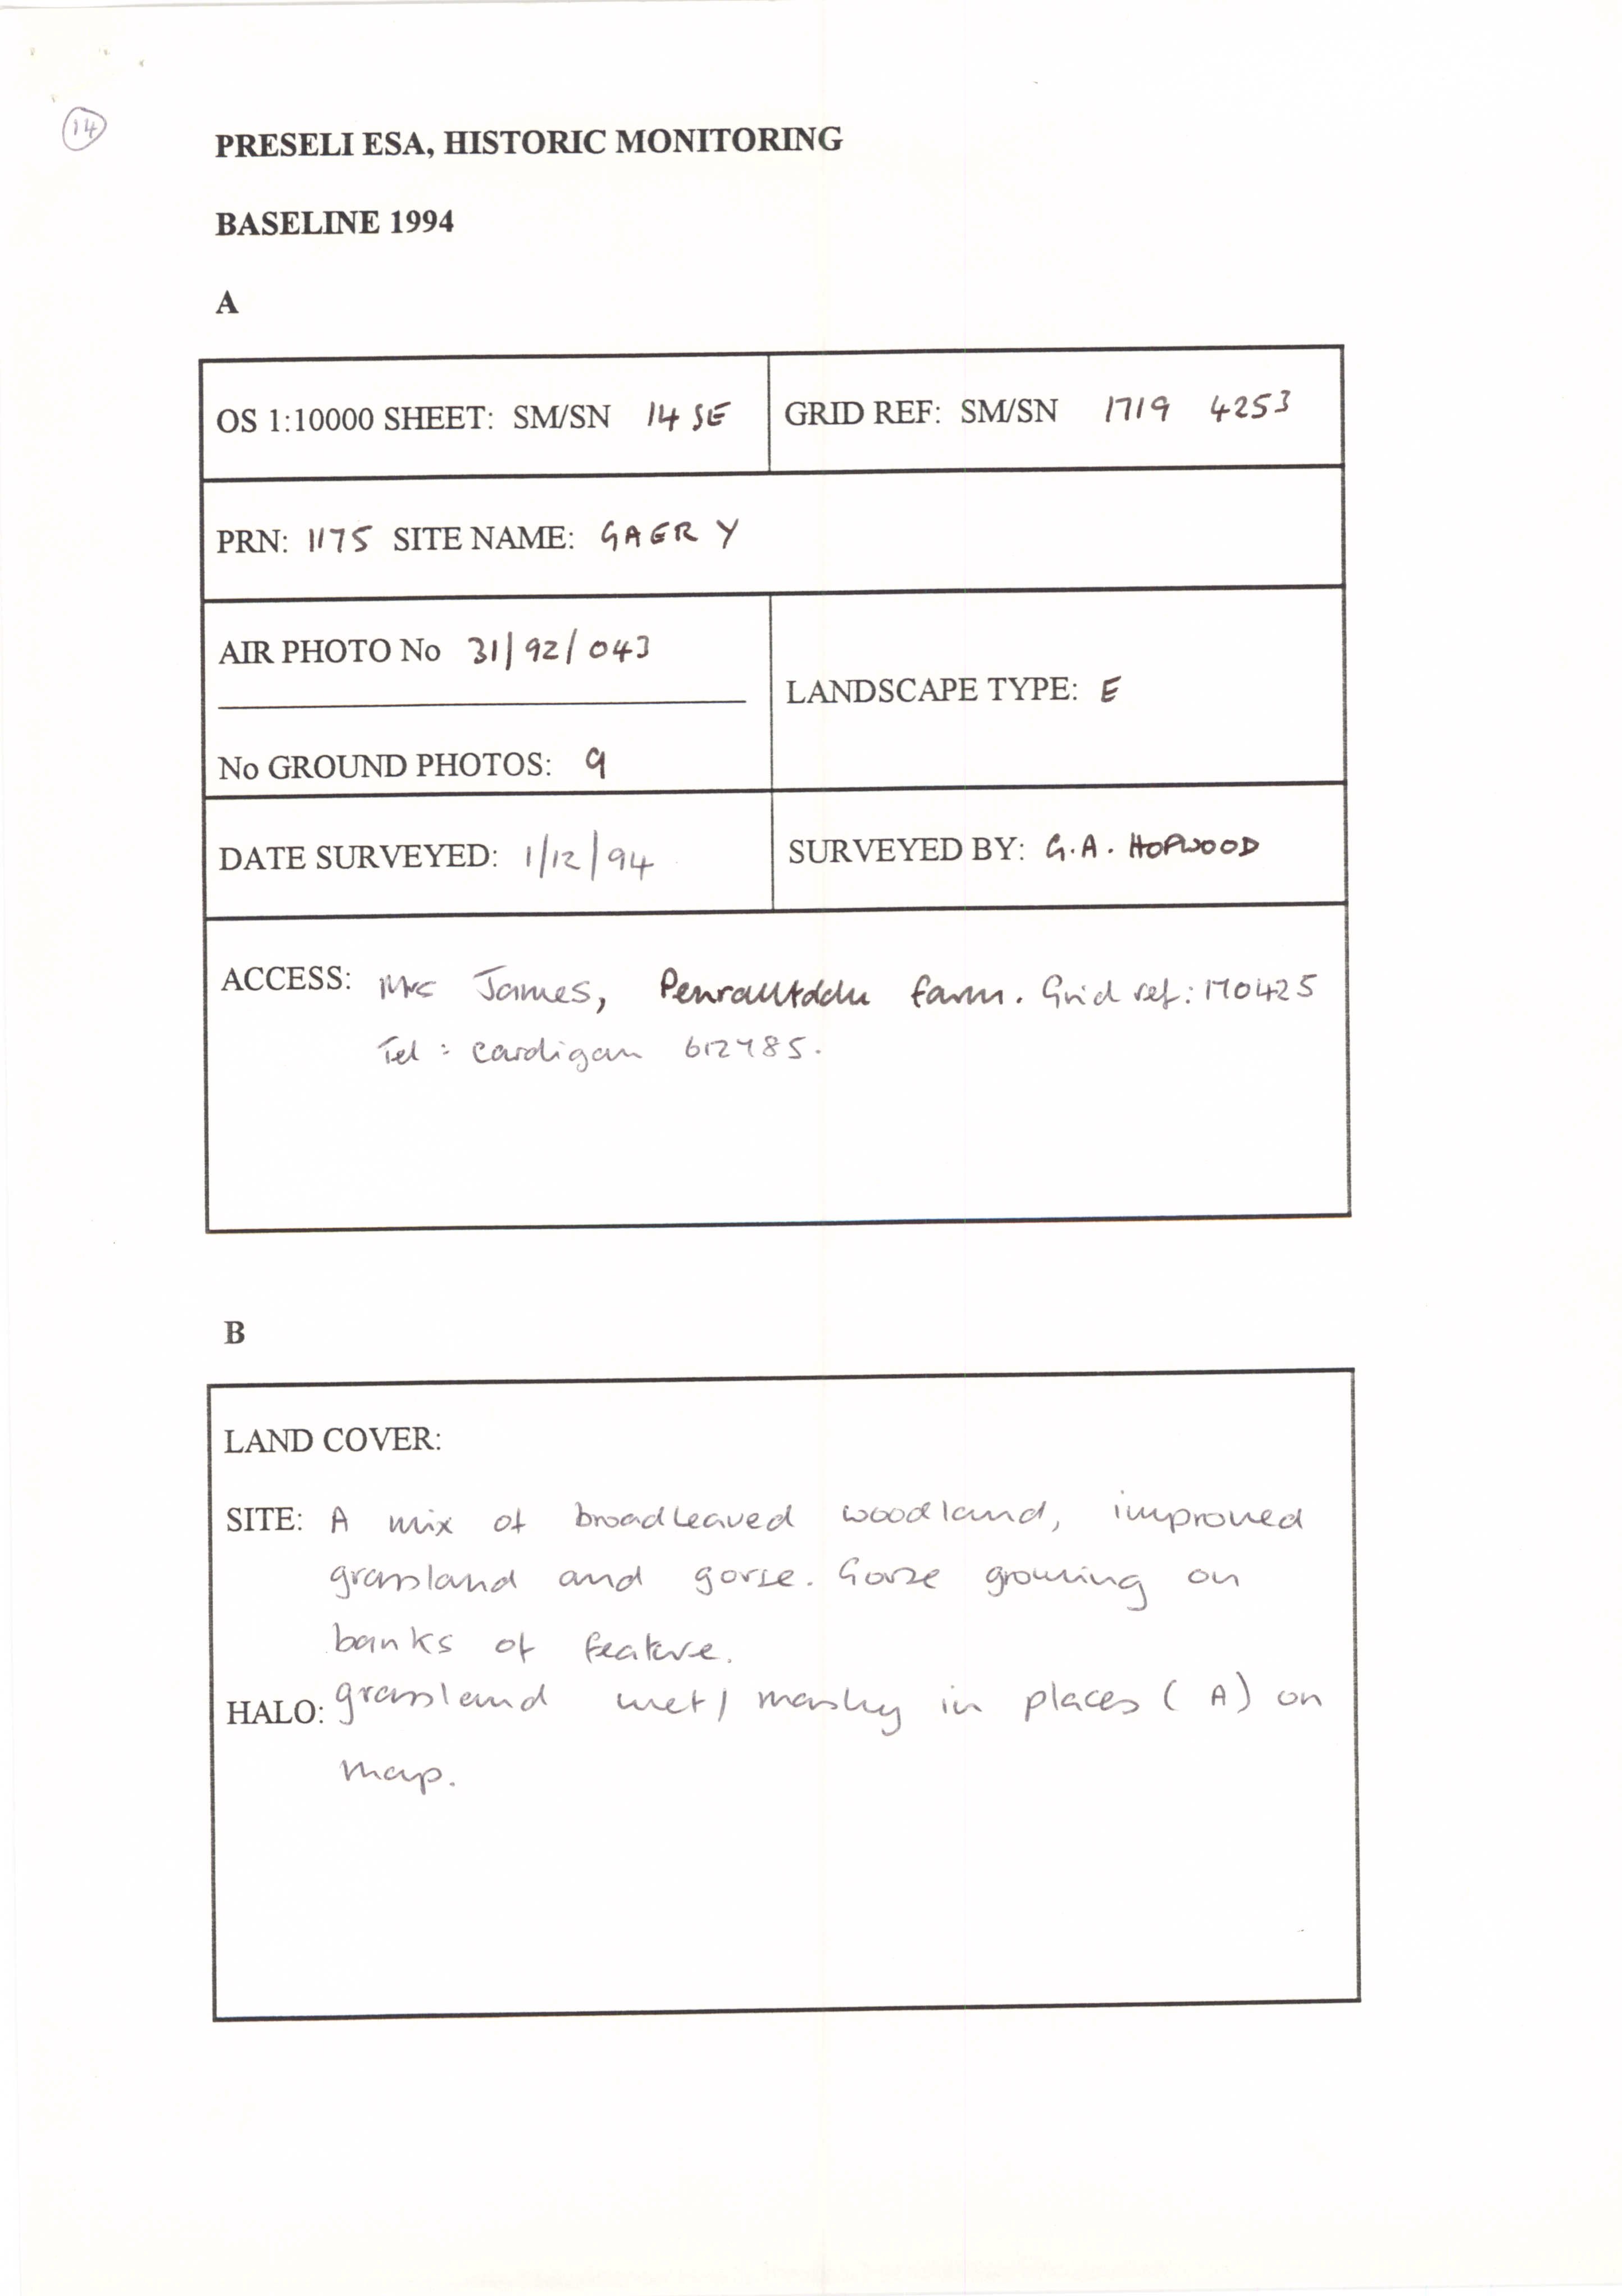 14
PRESELI ESA, HISTORIC MONITORING
BASELINE 1994
A
OS 1:10000 SHEET: SM/SN 14 SE
GRID REF: SM/SN 1719 4253
PRN: 1175 SITE NAME: GAER Y
AIR PHOTO No 31/92/043
LANDSCAPE TYPE: E
No GROUND PHOTOS: 9
DATE SURVEYED: 1/12/94
SURVEYED BY: G.A. HOPWOOD
ACCESS: Mrs James, Penralltddu farm. Grid ref: 170425
Tel: Cardigan
B
LAND COVER:
SITE: A mix of broadleaved woodland, improved
grassland and gorse. Gorse growing on
banks of feature.
HALO: grassland wet/marshy in places (A) on
map.